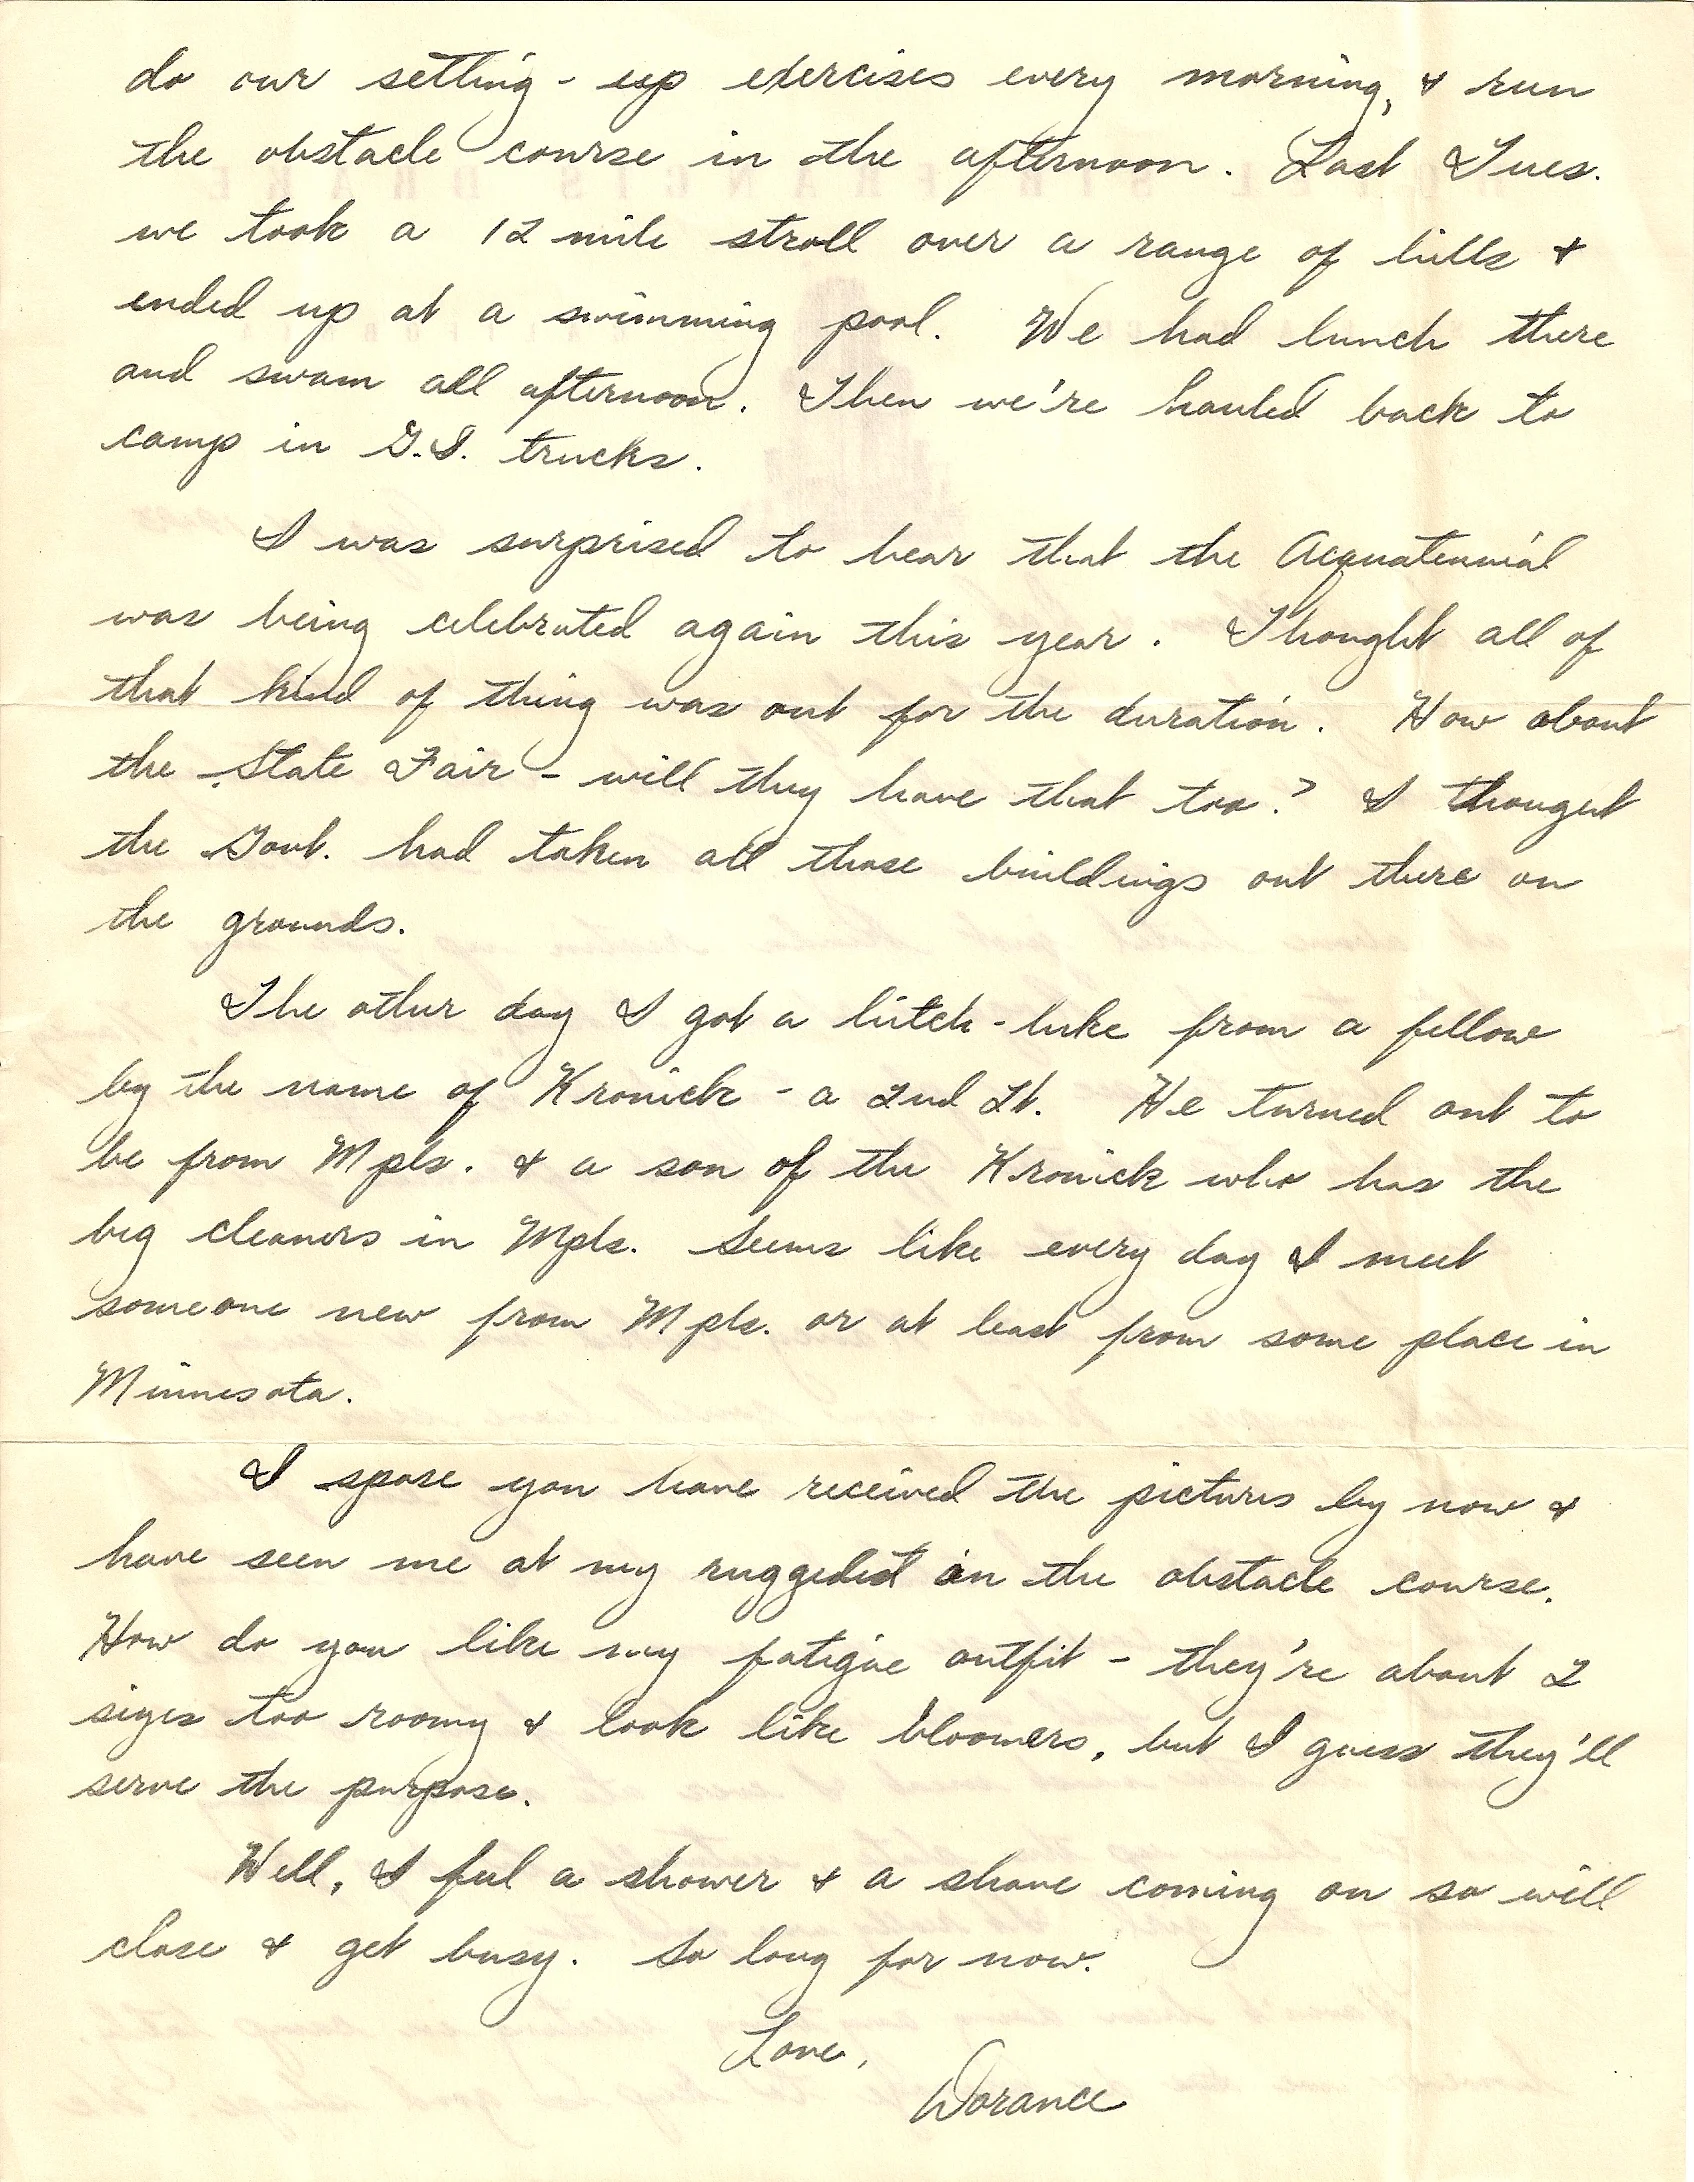 do our setting-up exercises every morning, & run
the obstacle course in the afternoon. Last Tues.
we took a 12 mile stroll over a range of hills &
ended up at a swimming pool. We had lunch there
and swam all afternoon. Then we're hauled back to
camp in G.I. trucks.
I was surprised to hear that the Acquatennial
was being celebrated again this year. Thought all of
that kind of thing was out for the duration. How about
the State Fair - will they have that too? I thought
the Govt. had taken all those buildings out there on
the grounds.
The other day I got a hitch-hike from a fellow
by the name of Kronick - a 2nd Lt. He turned out to
be from Mpls. & a son of the Kronick who has the
big cleaners in Mpls. Seems like every day I meet
someone new from Mpls. or at least from some place in
Minnesota.
I spose you have received the pictures by now &
have seen me at my ruggedist on the obstacle course.
How do you like my fatigue outfit - they're about 2
sizes too roomy & look like bloomers, but I guess they'll
serve the purpose.
Well, I feel a shower & a shave coming on so will
close & get busy. So long for now.
Love,
Dorance